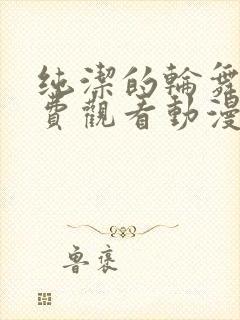 純潔的輪舞
費觀看動漫
魯褒